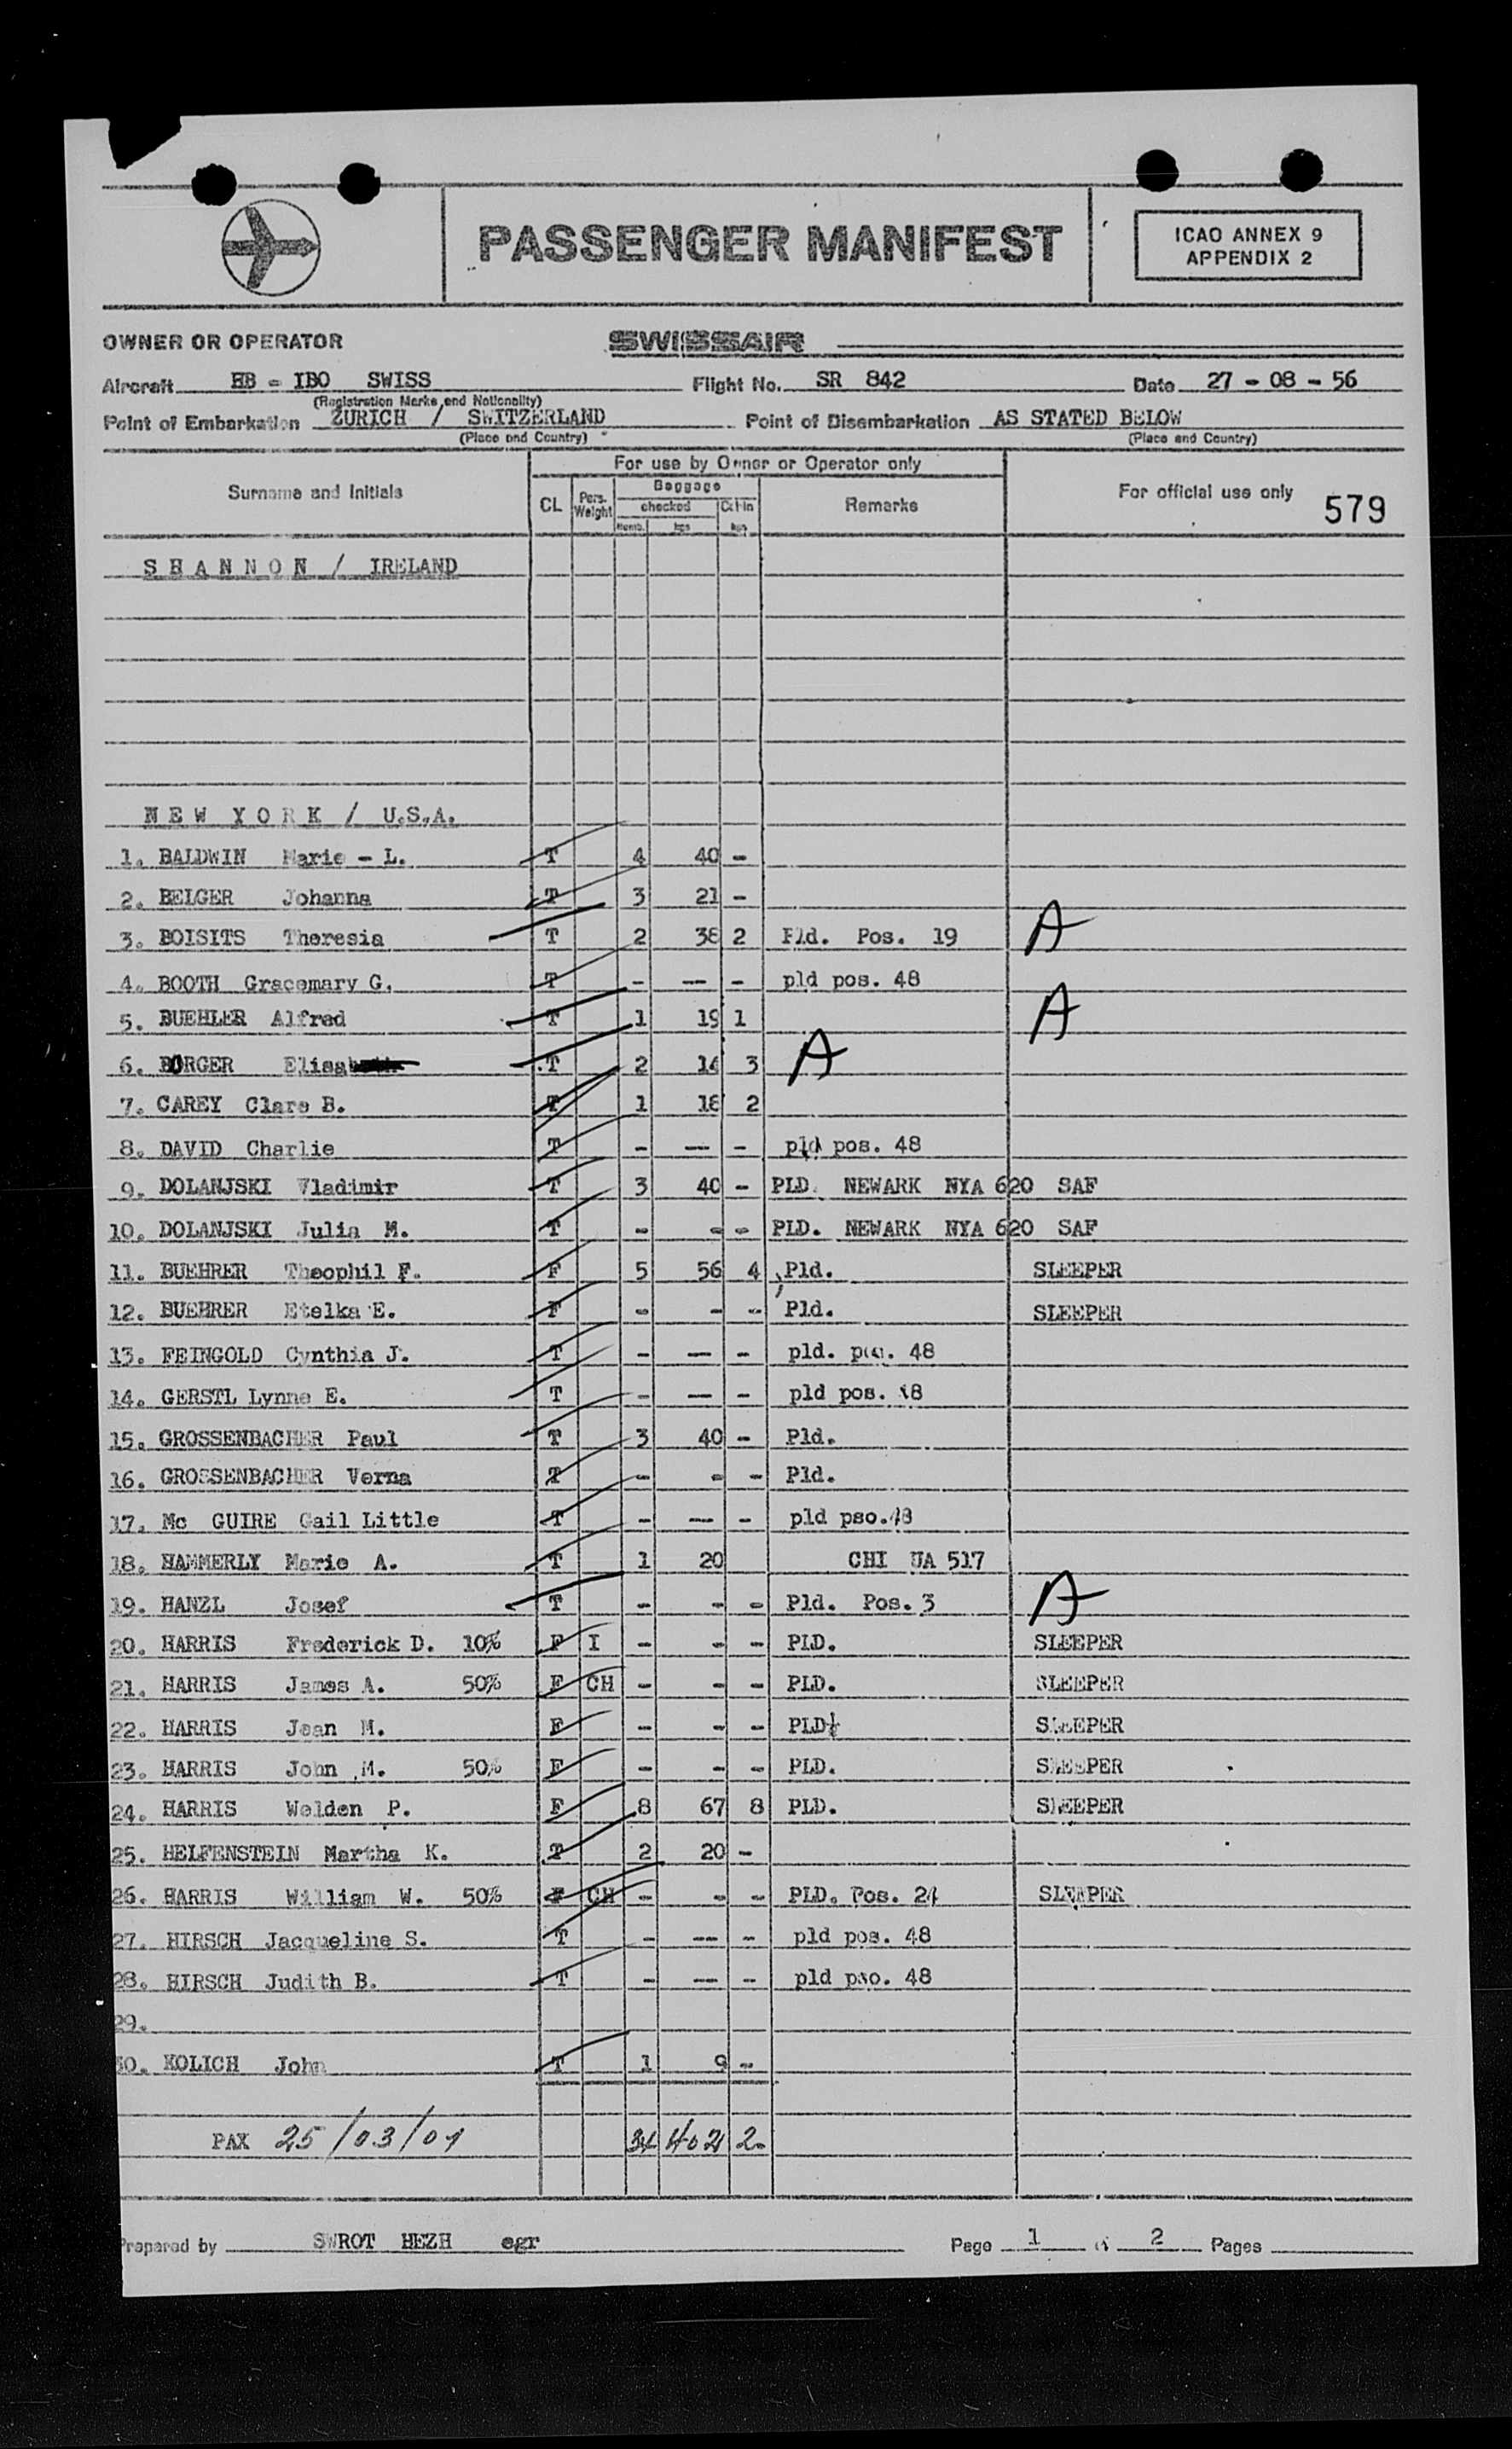 PASSENGER MANIFEST
ICAO ANNEX 9
APPENDIX 2
OWNER OR OPERATOR SWISSAIR
Aircraft HB - IBO SWISS Flight No. SR 842 Date 27 - 08 - 56
(Registration Marks and Nationality)
Point of Embarkation ZURICH / SWITZERLAND Point of Disembarkation AS STATED BELOW
(Place and Country) (Place and Country)
For use by Owner or Operator only
Surname and Initials CL Pers. Weight Baggage checked Numb. kgs Cab in kgs Remarks For official use only 579
SHANNON / IRELAND
NEW YORK / U.S.A.
1. BALDWIN Marie - L. T 4 40 -
2. BELGER Johanna T 3 21 -
3. BOISITS Theresia T 2 38 2 Pld. Pos. 19 A
4. BOOTH Gracemary G. T - -- - pld pos. 48
5. BUEHLER Alfred T 1 19 1 A
6. BORGER T 2 3 A
7. CAREY Clare B. T 1 18 2
8. DAVID Charlie T - -- - pld pos. 48
9. DOLANJSKI Vladimir T 3 40 - PLD. NEWARK NYA 620 SAF
10. DOLANJSKI Julia M. T - - - PLD. NEWARK NYA 620 SAF
11. BUEHRER Theophil F. F 5 56 4 Pld. SLEEPER
12. BUEHRER Etelka E. F - - - Pld. SLEEPER
13. FEINGOLD Cynthia J. T - -- - pld. pos. 48
14. GERSTL Lynne E. T - -- - pld pos. 48
15. GROSSENBACHER Paul T 3 40 - Pld.
16. GROSSENBACHER Verna T - - - Pld.
17. Mc GUIRE Gail Little T - -- - pld pso.48
18. HAMMERLY Marie A. T 1 20 CHI UA 517
19. HANZL Josef T - - - Pld. Pos. 3 A
20. HARRIS Frederick D. 10% F I - - - PLD. SLEEPER
21. HARRIS James A. 50% F CH - - - PLD. SLEEPER
22. HARRIS Jean M. F - - - PLD. SLEEPER
23. HARRIS John M. 50% F - - - PLD. SLEEPER
24. HARRIS Welden P. F 8 67 8 PLD. SLEEPER
25. HELFENSTEIN Martha K. T 2 20 -
26. HARRIS William W. 50% F CH - - - PLD. Pos. 24 SLEEPER
27. HIRSCH Jacqueline S. T - -- - pld pos. 48
28. HIRSCH Judith B. T - -- - pld pso. 48
29.
30. KOLICH John T 1 9 -
PAX 25/03/01 34 402 2
Prepared by SWROT HEZH egr Page 1 of 2 Pages